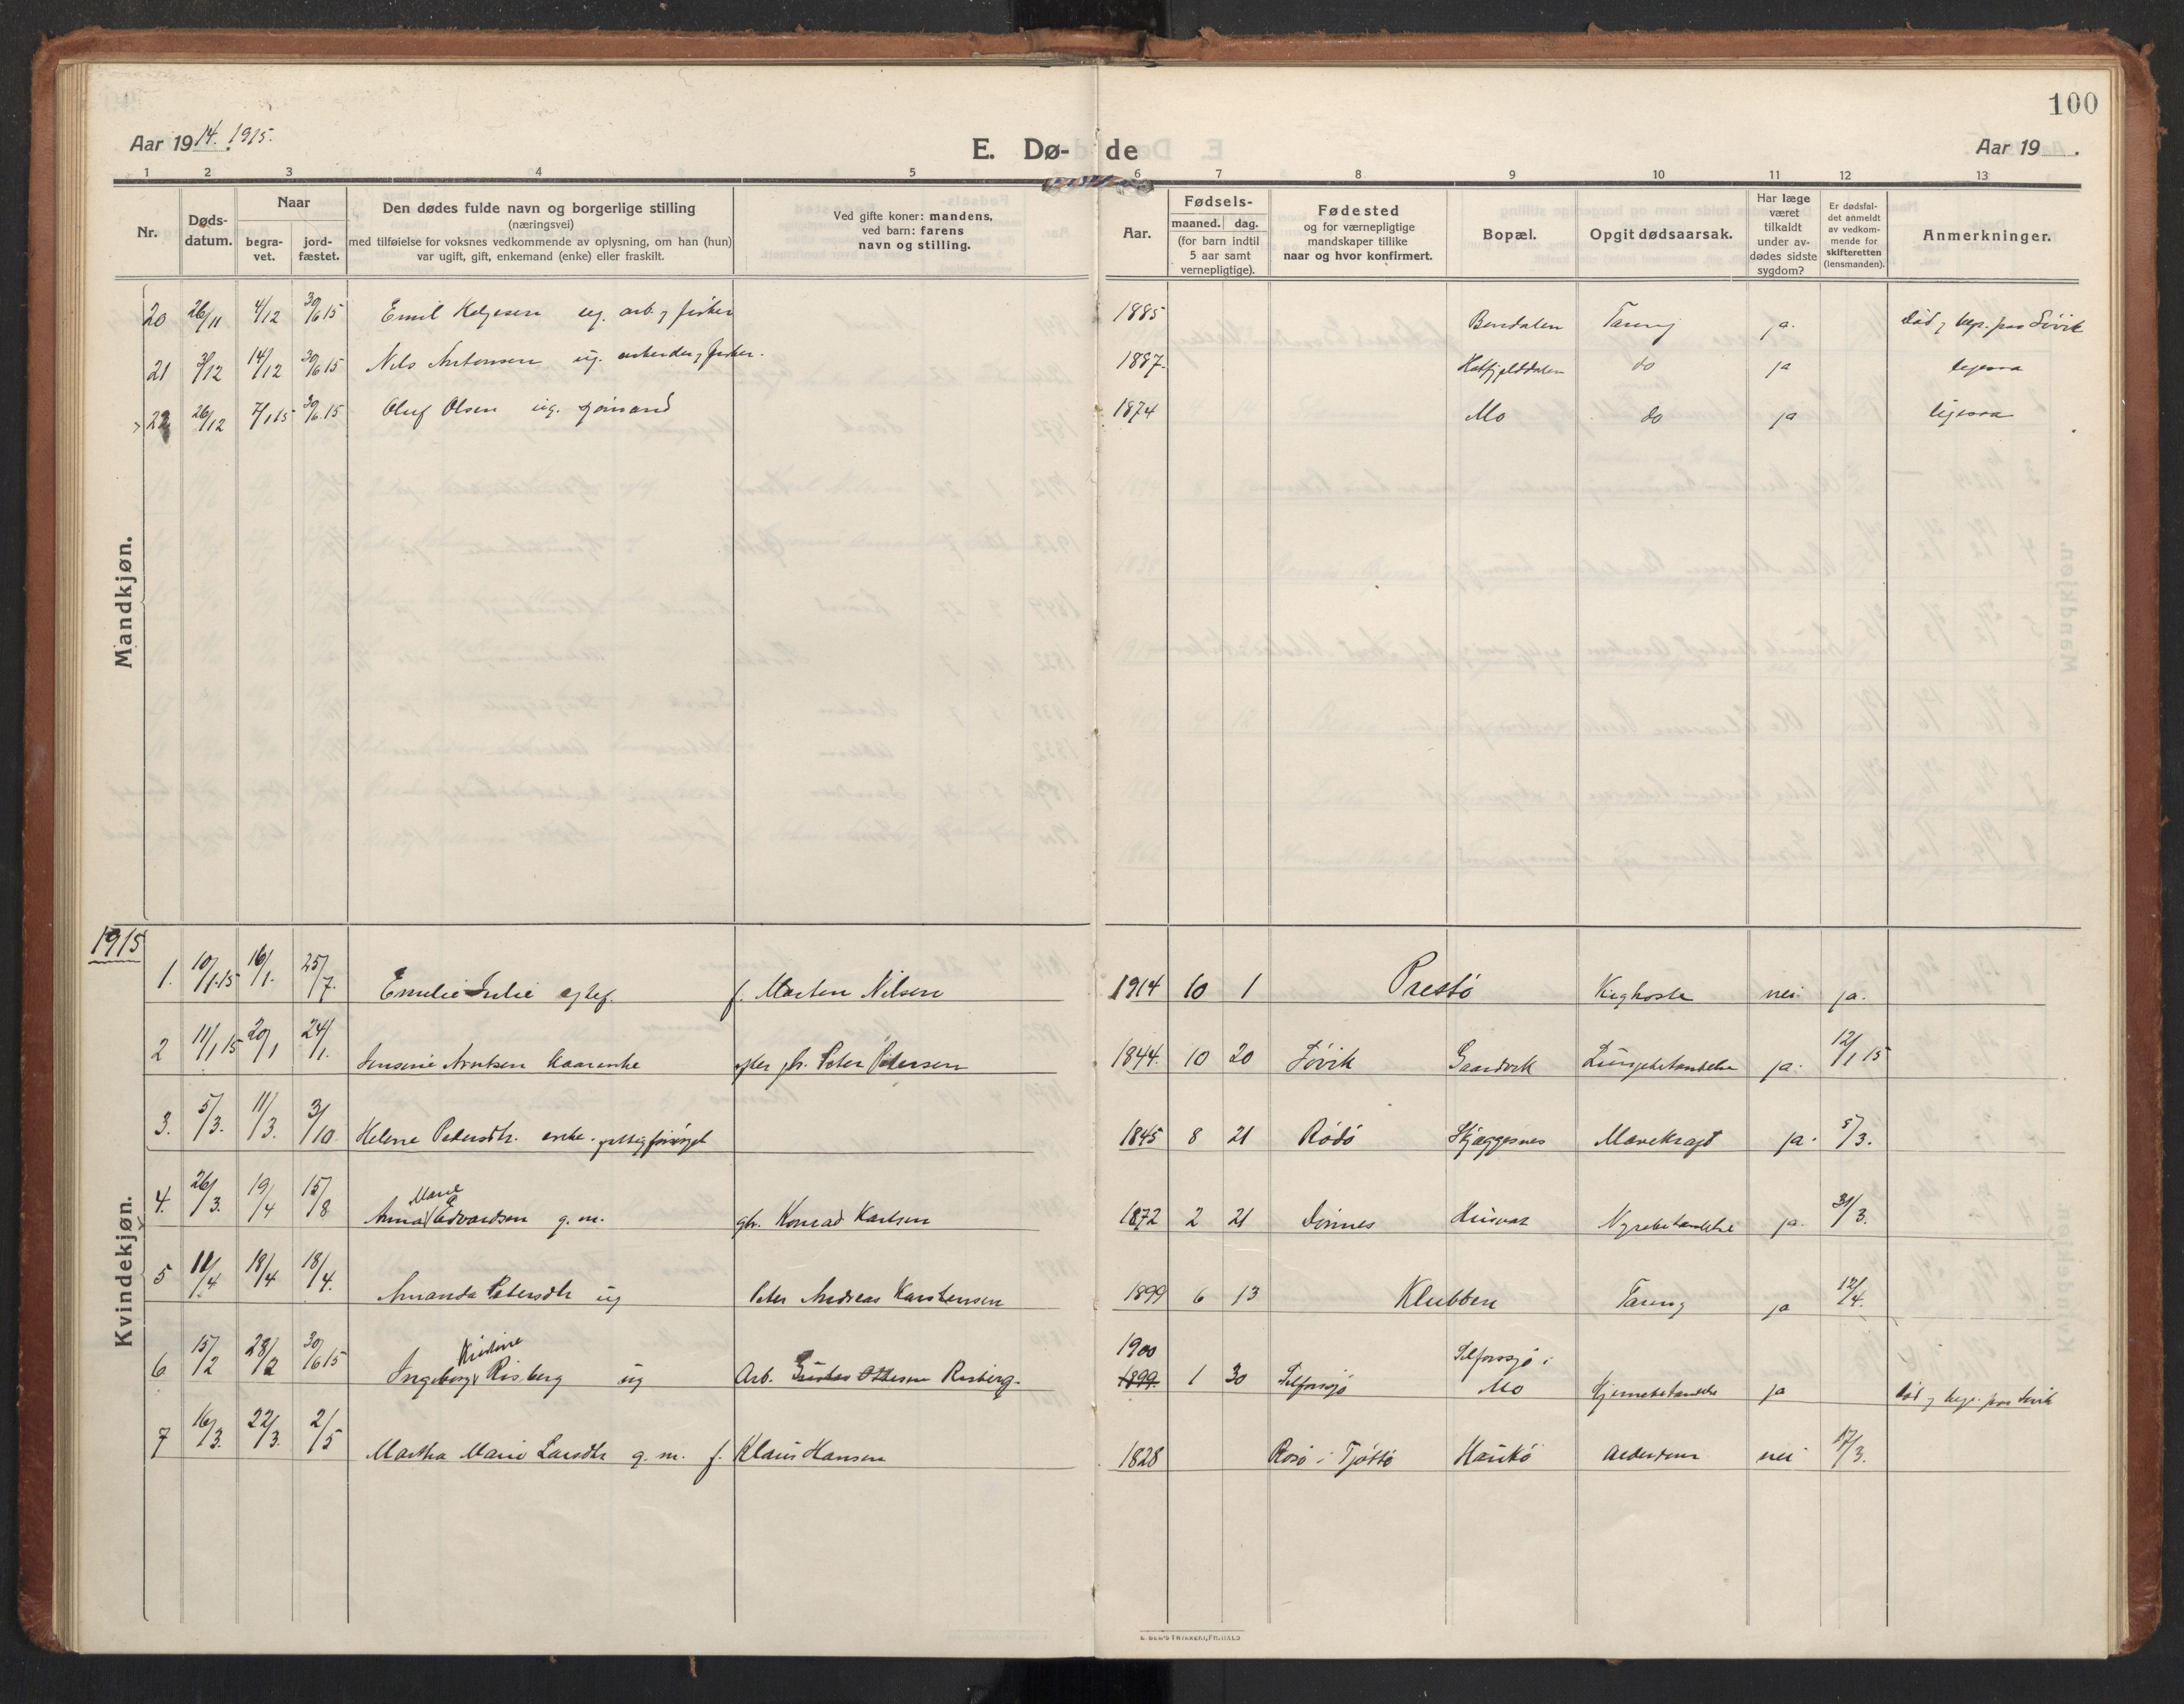 100
Aar 1914. 1915.
E. Dø- de
Aar 19 .
1 2 3 4 5 6 7 8 9 10 11 12 13
Nr.
Døds-
datum.
Naar
begra-
vet.
jord-
fæstet.
Den dødes fulde navn og borgerlige stilling
(næringsvei)
med tilføielse for voksnes vedkommende av oplysning, om han (hun)
var ugift, gift, enkemand (enke) eller fraskilt.
Ved gifte koner: mandens,
ved barn: farens
navn og stilling.
Aar.
Fødsels-
maaned. dag.
(for barn indtil
5 aar samt
vernepligtige).
Fødested
og for værnepligtige
mandskaper tillike
naar og hvor konfirmert.
Bopæl.
Opgit dødsaarsak.
Har læge
været
tilkaldt
under av-
dødes sidste
sygdom?
Er dødsfal-
det anmeldt
av vedkom-
mende for
skifteretten
(lensmanden).
Anmerkninger.
Mandkjøn.
20 26/11 4/12 30/6 15 Emil Helgesen ug. arb. g fisker 1885 Bendalen Tæring ja. Død g begr. paa Sövik
21 3/12 14/12 30/6 15 Nils Antonsen ug. arbeider g fisker. 1887. Hatfjelddalen do ja ligesaa
22 26/12 7/1 15 30/6 15 Oluf Olsen ug. sjömand 1874 Mo do ja ligesaa
1915
Kvindekjøn.
1. 10/1 15 16/1. 25/7. Emelie Julie egtef. f. Morten Nilsen 1914 10 1 Prestö Kighoste nei ja.
2 11/1 15 20/1 24/1. Jensine Arntsen kaarenke efter gbr. Peter Petersen 1844. 10 20 Sövik Sandvik Lungebetændelse ja. 12/1 15
3. 5/3. 11/3. 3/10. Helene Pedersdtr. enke. fattigforsörget 1845 8 21 Rödö Skjæggesnes Mavekræft ja. 5/3.
4. 26/3. 19/4 15/8 Anna Marie Edvardsen g. m. gbr. Konrad Karlsen 1872 2 21 Dönnes Husvær Nyrebetændelse ja. 31/3.
5 11/4 18/4 18/4. Amanda Petersdtr ug Peter Andreas Karstensen 1899 6 13 Klubben Tæring ja 12/4.
6 15/2 28/2 30/6 15 Ingeborg Kristine Risberg ug Arb. Gustav Ottesen Risberg. 1900 1899. 1 30 Selforssjö Selforssjö i Mo Hjernebetændelse ja Död g begr. paa Sövik
7 16/3. 22/3. 2/5 Martha Marie Larsdtr g. m. f. Klaus Hansen 1828 Rosö i Tjöttö Haukö Alderdom nei 17/3.